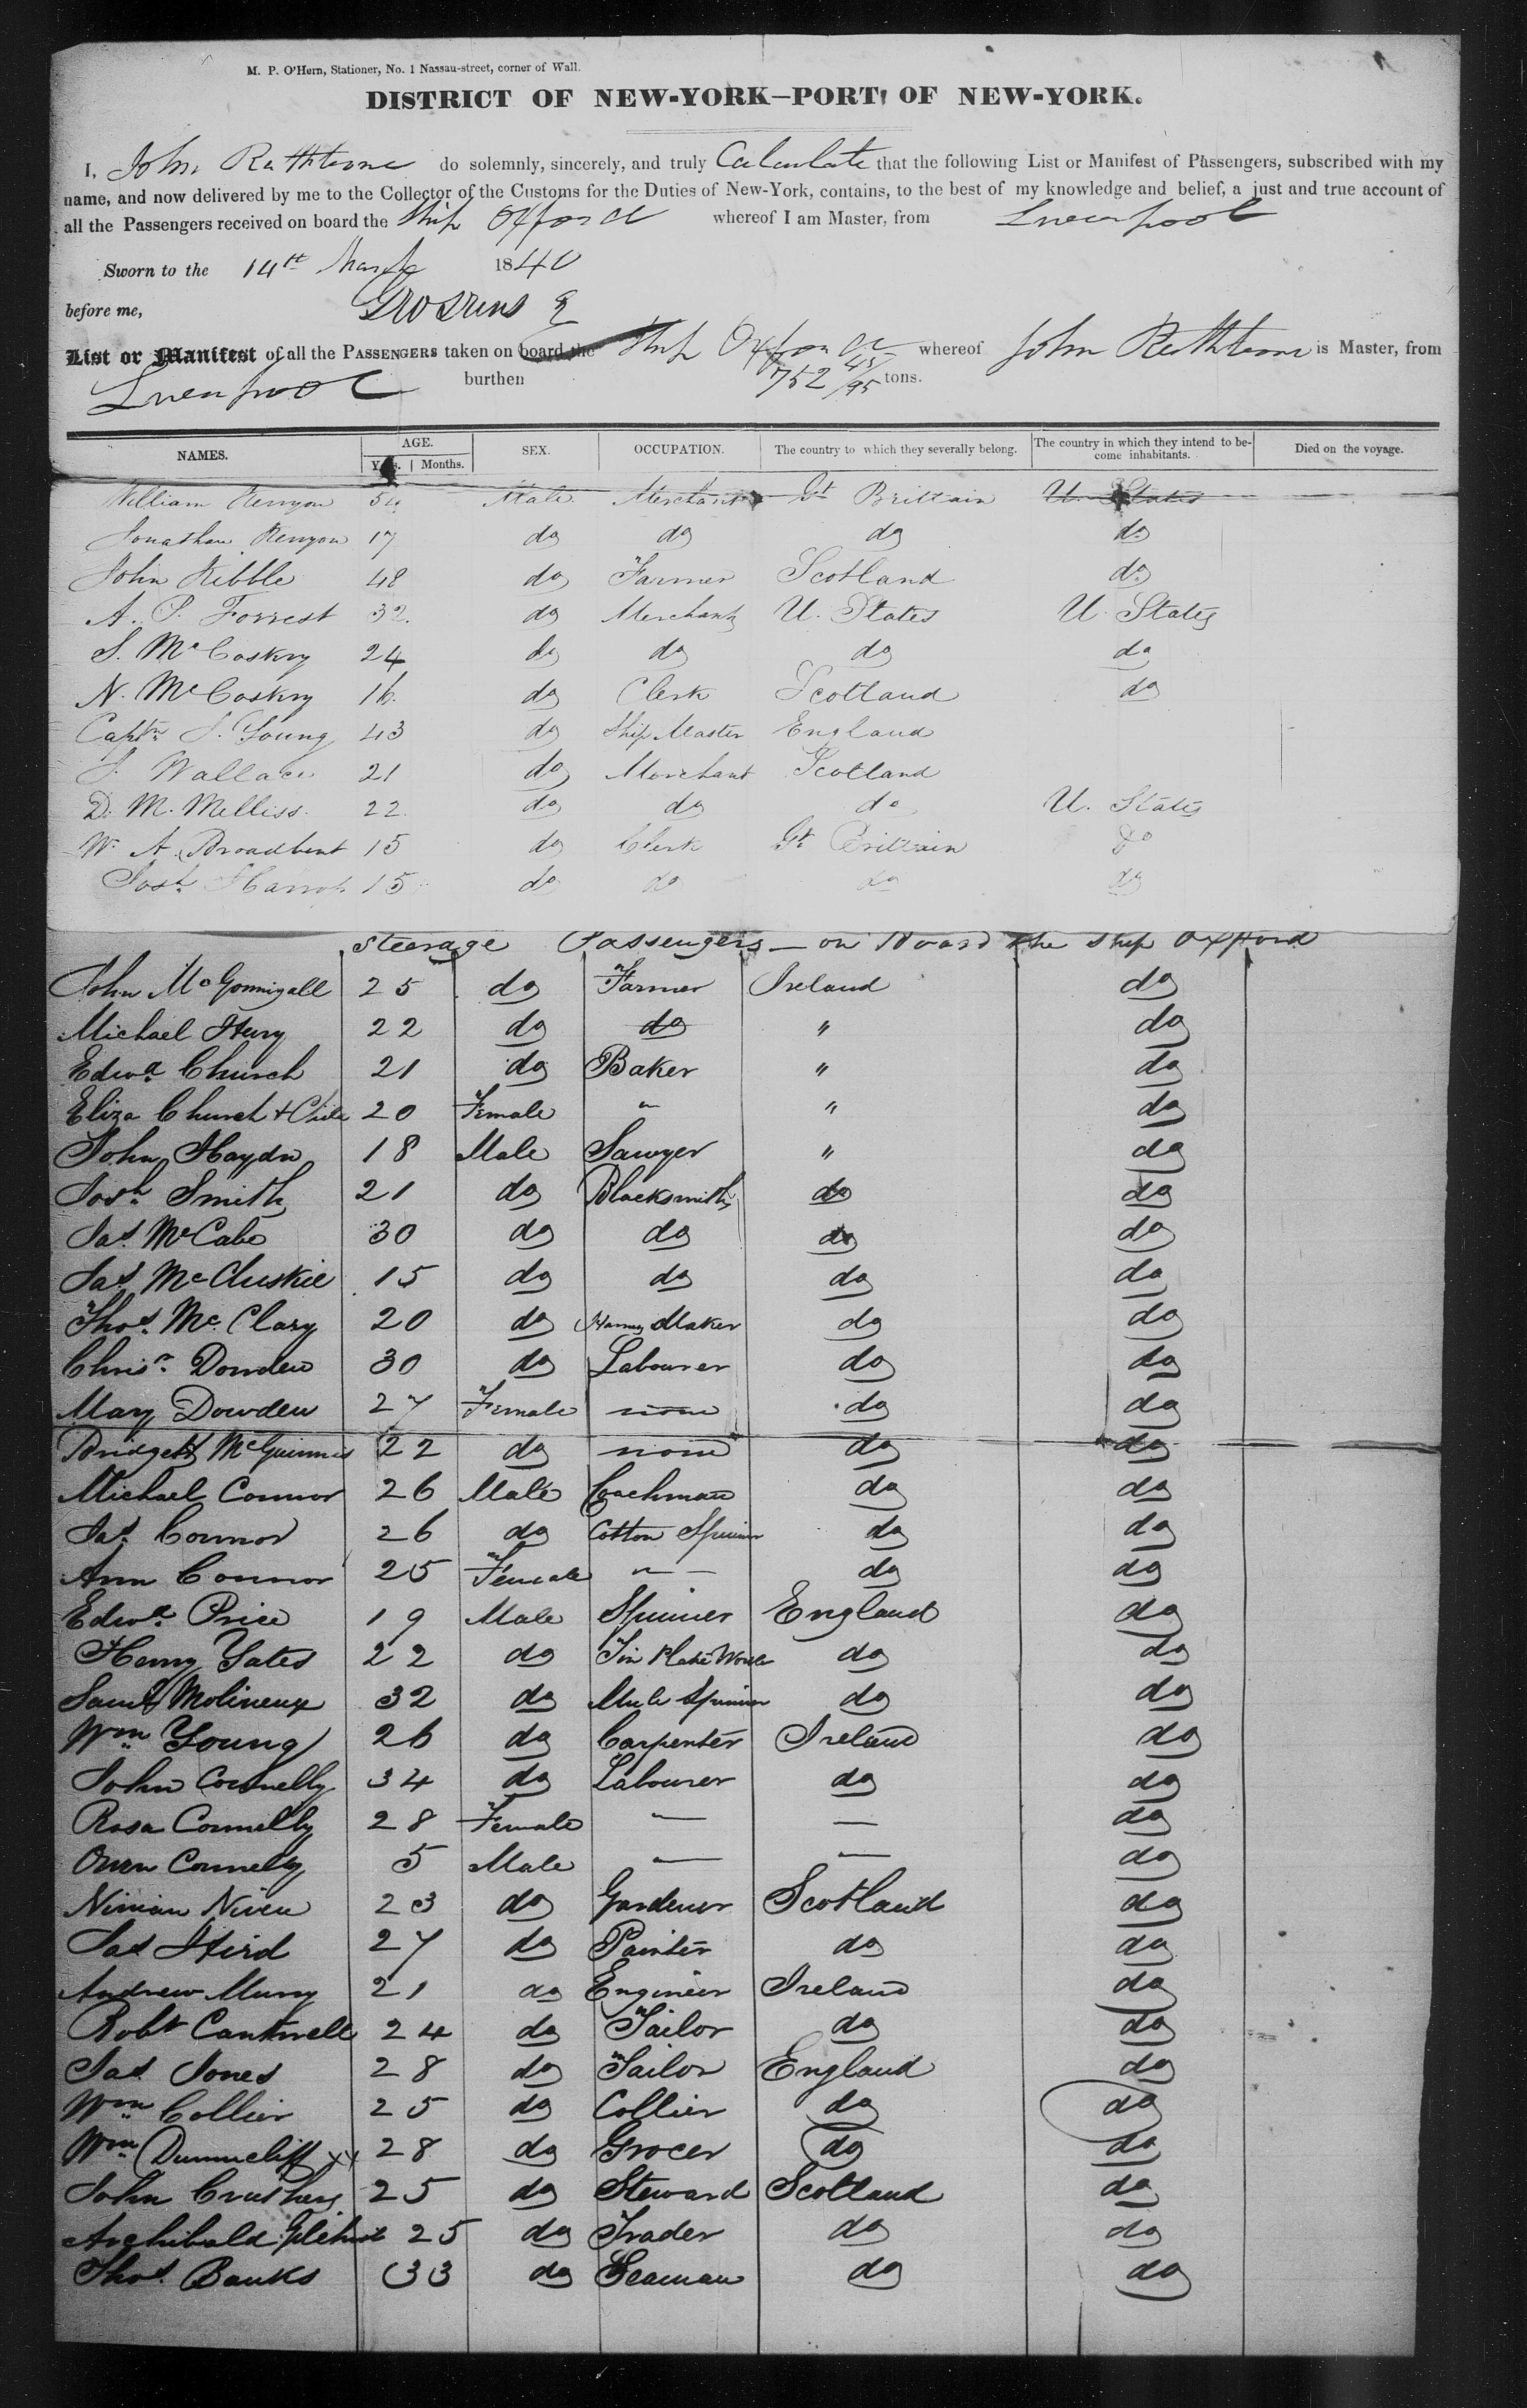 M. P. O'Hern, Stationer, No. 1 Nassau-street, corner of Wall.
DISTRICT OF NEW-YORK—PORT OF NEW-YORK.
I, John Rathbone do solemnly, sincerely, and truly that the following List or Manifest of Passengers, subscribed with my
name, and now delivered by me to the Collector of the Customs for the Duties of New-York, contains, to the best of my knowledge and belief, a just and true account of
all the Passengers received on board the Ship Oxford whereof I am Master, from Liverpool
Sworn to the 14th March 1840
before me,
List or Manifest of all the PASSENGERS taken on board the Ship Oxford whereof John Rathbone is Master, from
Liverpool burthen 752 45/95 tons.
NAMES. AGE. SEX. OCCUPATION. The country to which they severally belong. The country in which they intend to be- Died on the voyage.
Years. Months. come inhabitants.
William Kenyon Male Merchant Gt Brittain U. States
Jonathan Kenyon 17 do do do do
John Kibble 48 do Farmer Scotland do
A. P. Forrest 32 do Merchant U. States U. States
S. McCoskry 24 do do do do
N. McCoskry 16 do Clerk Scotland do
Captn J. Young 43 do Ship Master England
J. Wallace 21 do Merchant Scotland
D. M. Melliss 22 do do do U. States
W. A. Broadbent 15 do Clerk Gt Brittain Do
Josh Harrop 15 do do do do
Steerage Passengers — on Board the Ship Oxford
John McGonnigall 25 do Farmer Ireland do
Michael 22 do do " do
Edwd Church 21 do Baker " do
Eliza Church & Child 20 Female " " do
John Haydn 18 Male Sawyer " do
Josh Smith 21 do Blacksmith do do
Jas McCabe 30 do do do do
Jas McCluskie 15 do do do do
Thos McClary 20 do Harness Maker do do
Chrisr Dowden 30 do Labourer do do
Mary Dowden 27 Female none do do
Bridgett McGuinness 22 do none do do
Michael Connor 26 Male Coachman do do
Jas Connor 26 do Cotton Spinner do do
Ann Connor 25 Female " — do do
Edwd Price 19 Male Spinner England do
Henry Yates 22 do Tin Plate Worker do do
Saml Molineux 32 do Mule Spinner do do
Wm Young 26 do Carpenter Ireland do
John Connelly 34 do Labourer do do
Rosa Connelly 28 Female — — do
Owen Connelly 5 Male — — do
Ninian Niven 23 do Gardener Scotland do
Jas Hird 27 do Painter do do
Andrew Murry 21 do Engineer Ireland do
Robt Cantwell 24 do Tailor do do
Jas Jones 28 do Tailor England do
Wm Collier 25 do Collier do do
Wm Dunnicliff xx 28 do Grocer do do
John 25 do Steward Scotland do
Archibald 25 do Trader do do
Thos Banks 33 do Seaman do do